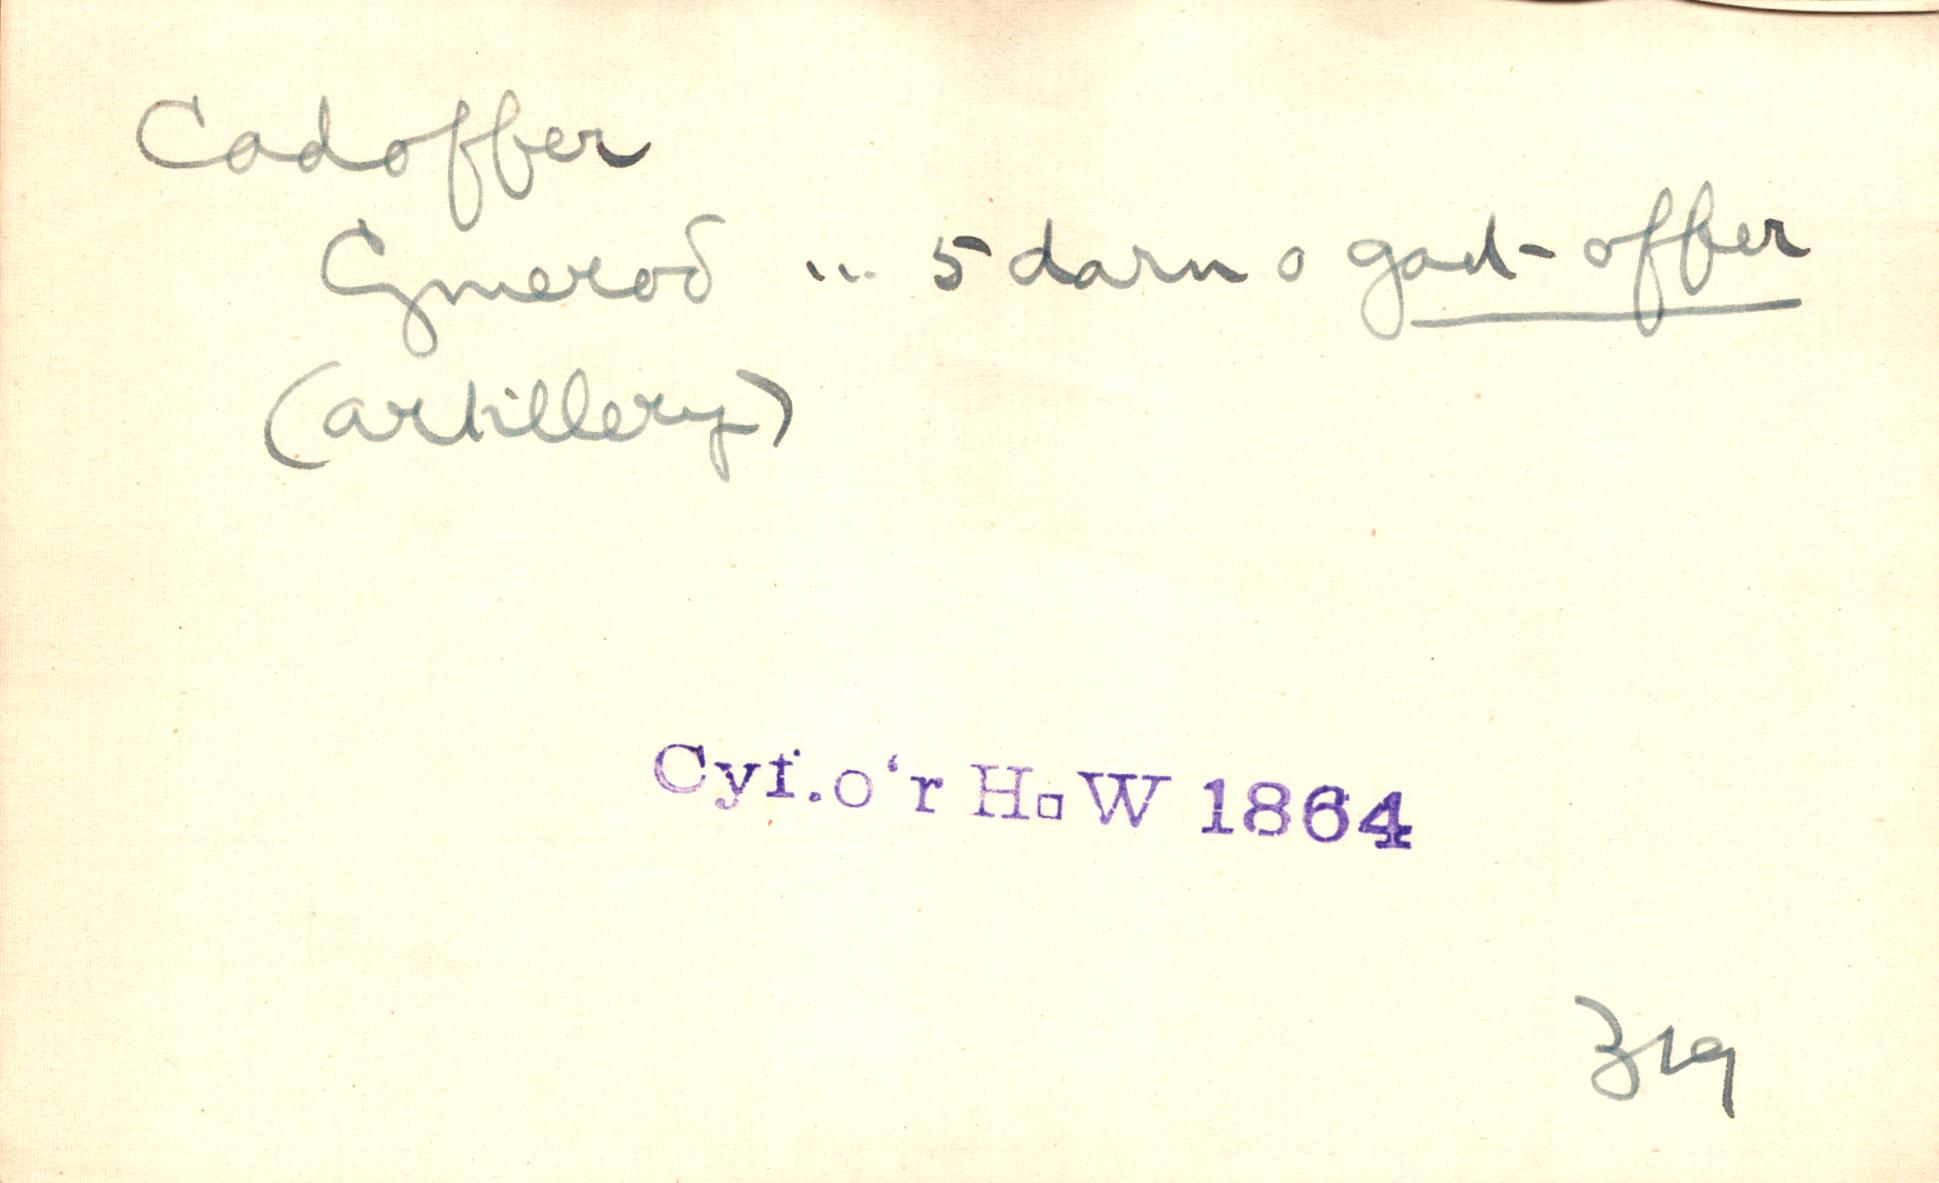 Cadoffer
Cymerod ... 5 darn o gad-offer
(artillery)
Cyf.o'r H.W 1864
319